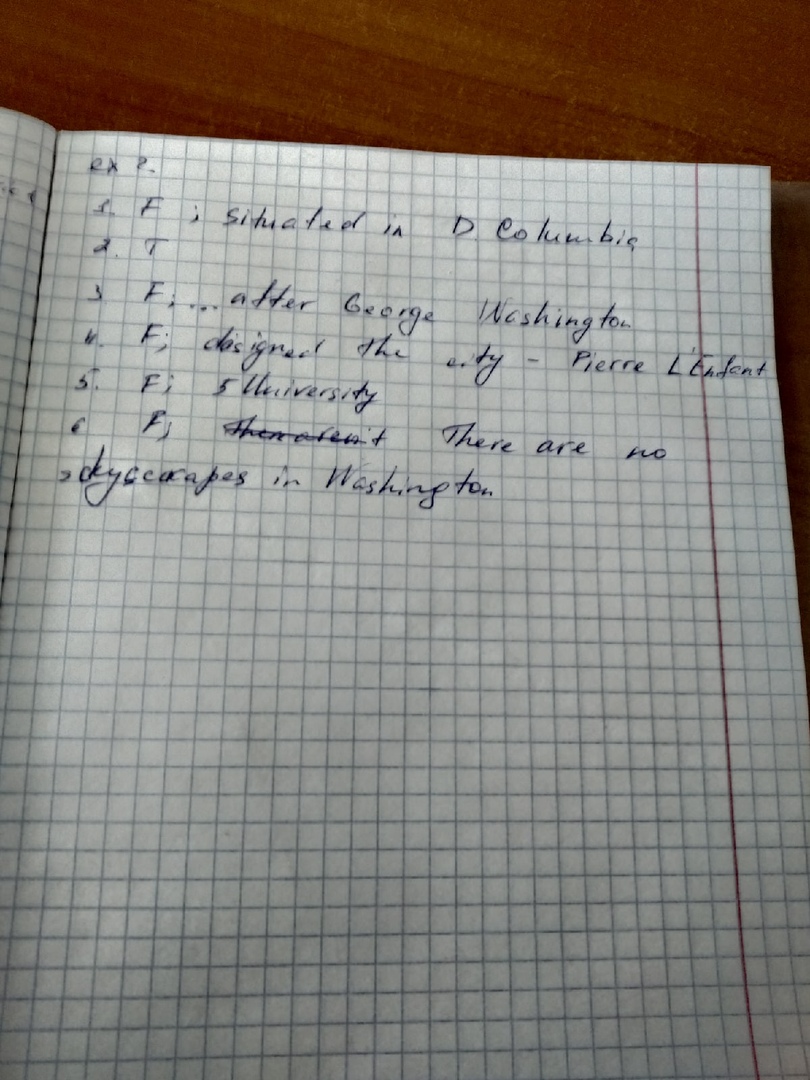 ex 2.
1. F ; situated in D. Columbia
2. T
3 F; ... after George Washington
4. F; designed the city - Pierre L'Enfant
5. F; 5 University
6 F; There are no
skyscrapes in Washington